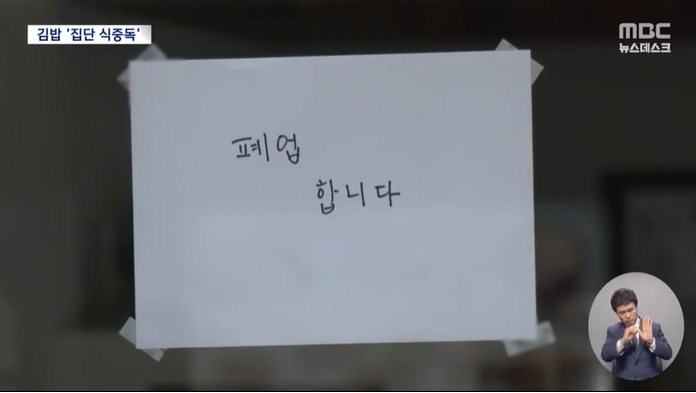 김밥 '집단 식중독'
MBC
뉴스데스크
폐업
합니다